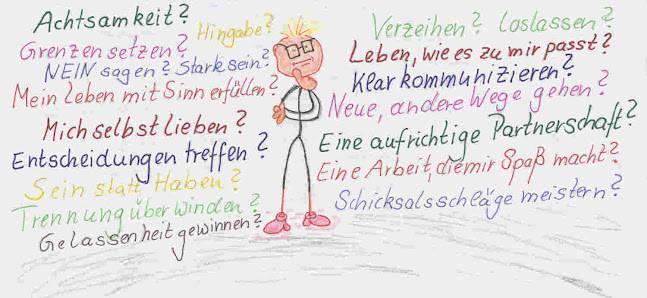 Achtsamkeit?
Hingabe?
Grenzen setzen?
NEIN sagen? Stark sein?
Mein Leben mit Sinn erfüllen?
Mich selbst lieben?
Entscheidungen treffen?
Sein statt Haben?
Trennung überwinden?
Gelassenheit gewinnen?
Verzeihen? Loslassen?
Leben, wie es zu mir passt?
Klar kommunizieren?
Neue, andere Wege gehen?
Eine aufrichtige Partnerschaft?
Eine Arbeit, die mir Spaß macht?
Schicksalsschläge meistern?